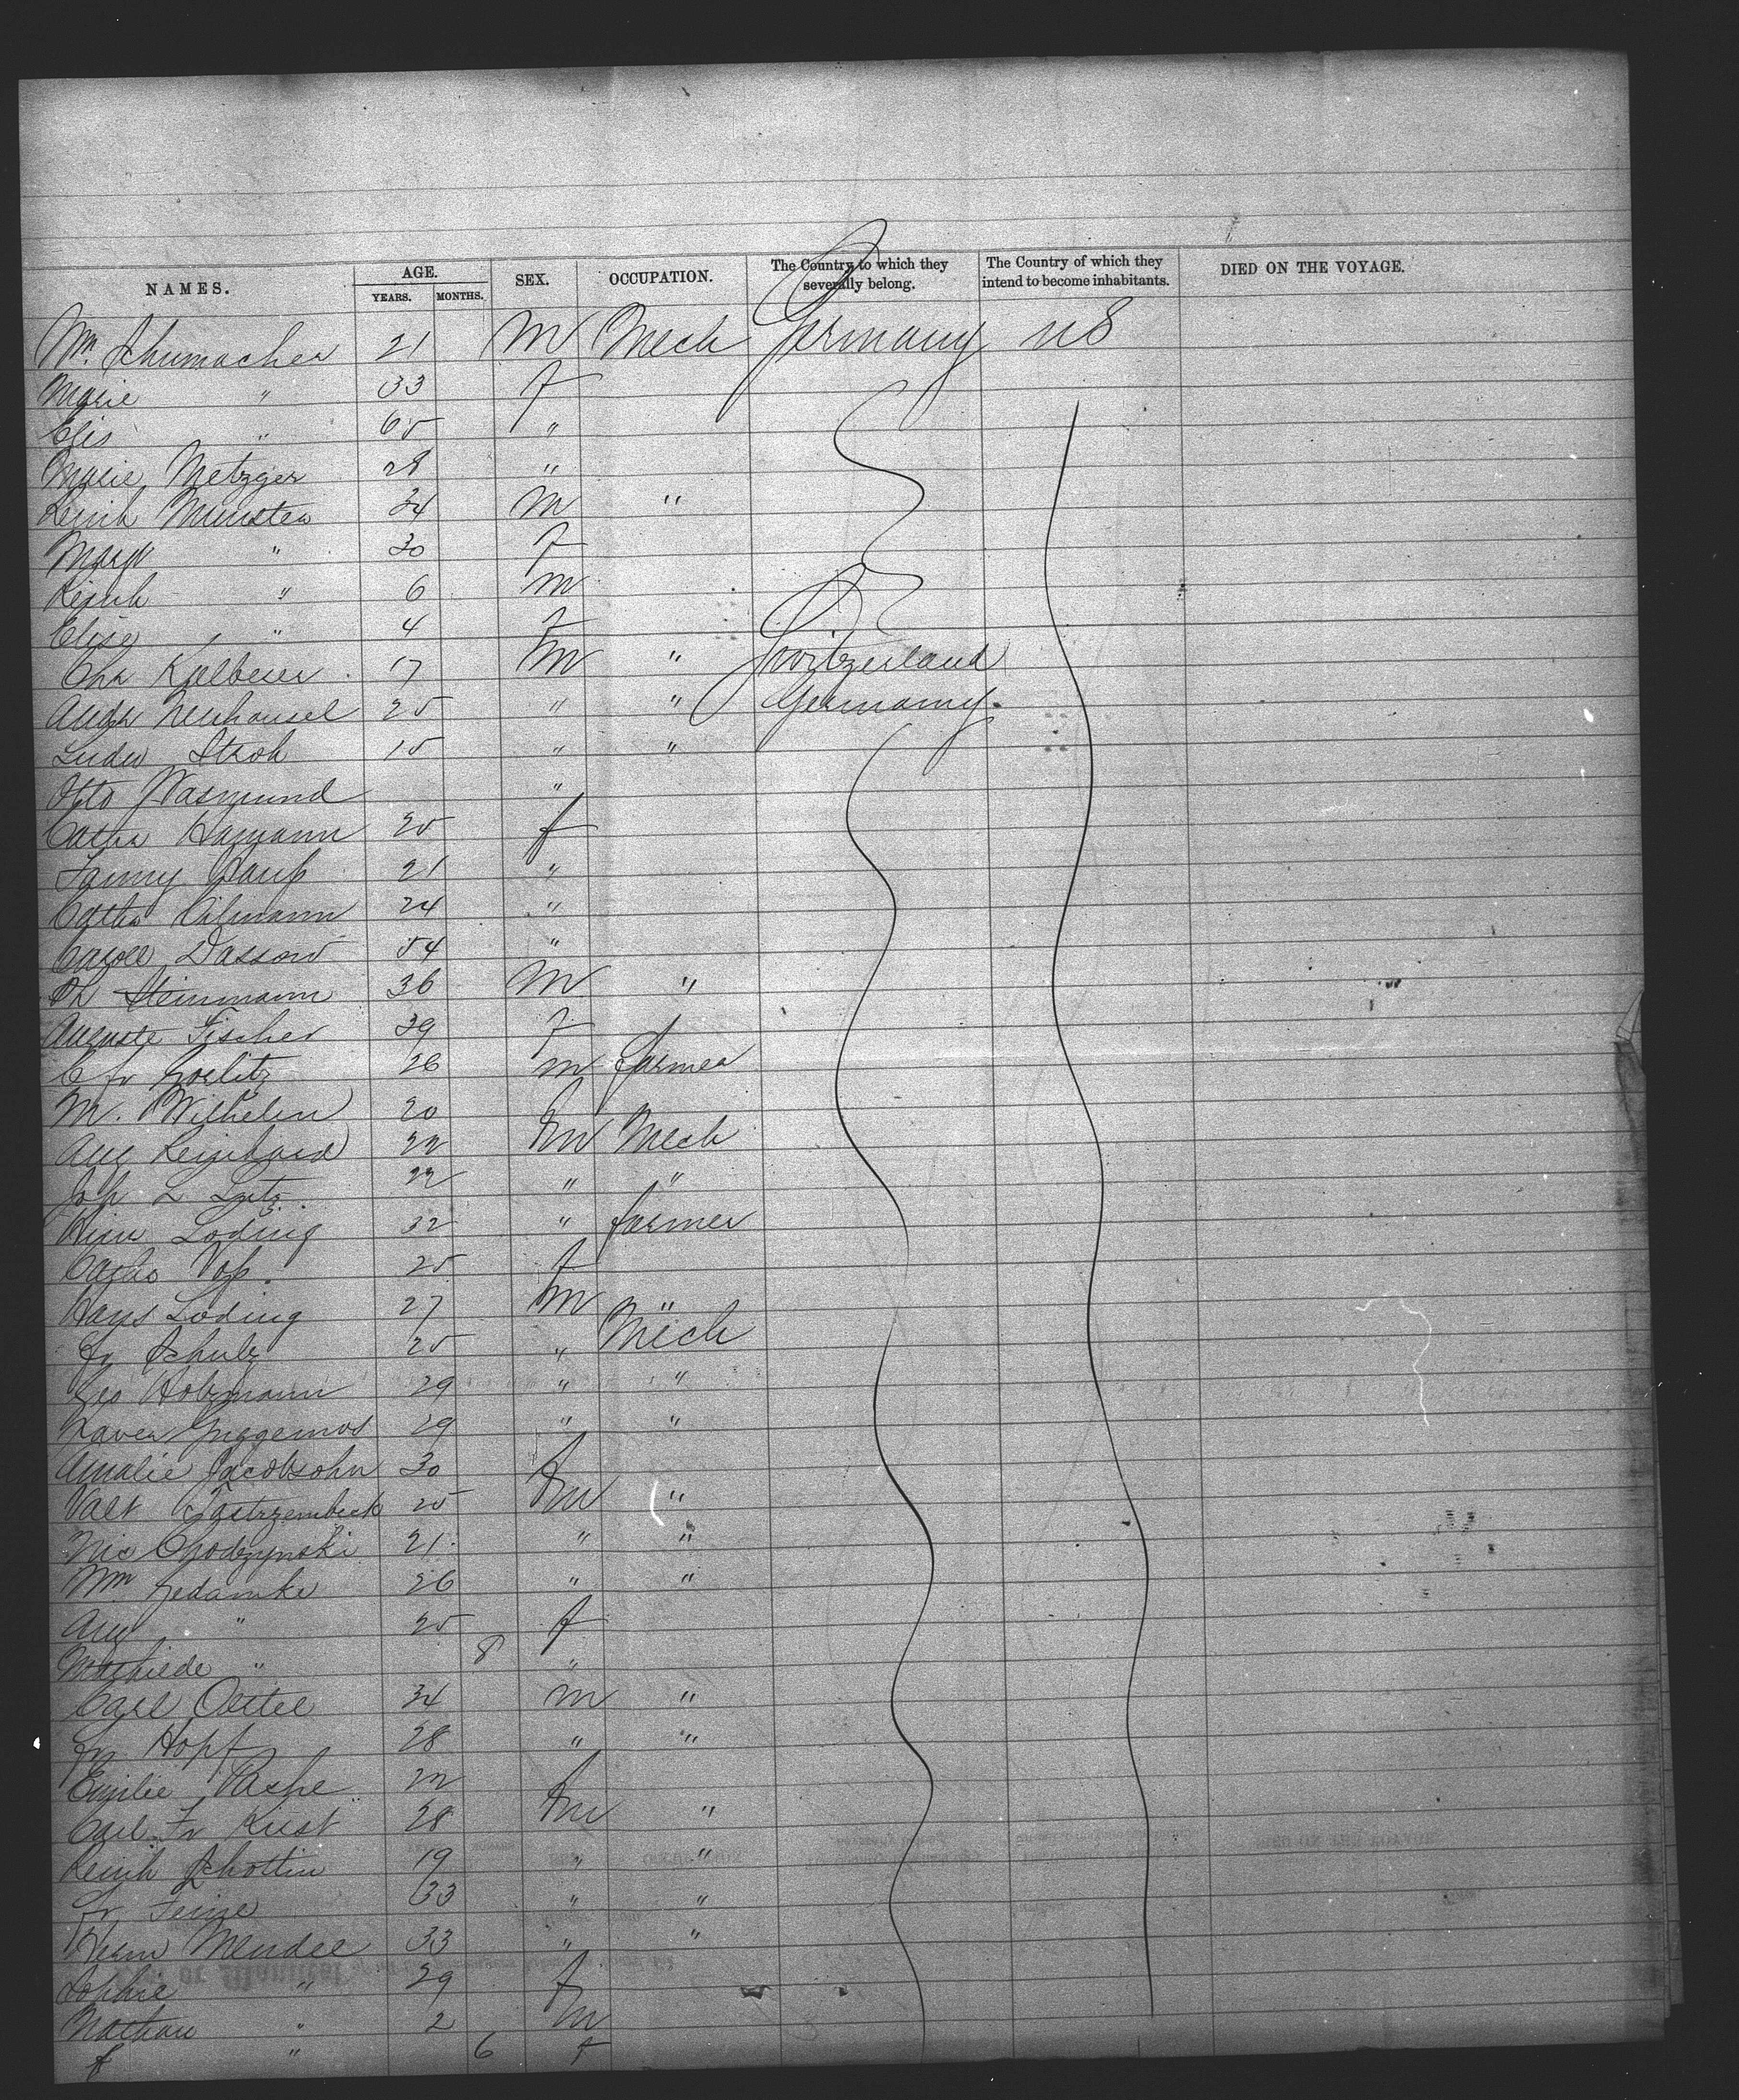 NAMES. AGE. YEARS. MONTHS. SEX. OCCUPATION. The Country to which they severally belong. The Country of which they intend to become inhabitants. DIED ON THE VOYAGE.
Wm. Schumacher 21 M Mech Germany US
Marie " 33 f
Elis " 65 "
Marie Metzger 28 "
Heinh Munster 34 M "
Mary " 30 f
Heinh " 6 m
Elise " 4 f
Chr Kalberer 17 m " Switzerland
Augh Neuhausel 25 " " Germany.
Ludw Stroh 15 " "
Otto Wasmund "
Catha Hamann 25 f
Fanny 21 "
Catha 24 "
Caroll Dassow 54 "
Ph Steinmann 36 M "
Auguste Fischer 39 f
C fr Goelitz 26 m farmer
M. Wilhelm 20
Aug Reinhard 22 m Mech
Joh L Lutz 22 " "
Hinr Loding 32 " farmer
Catha Vop. 25 f
Hans Loding 27 m "
Fr Schulz 25 " Mech
Geo Holzmann 29 " "
Xaver Guggemos 29 " "
Amalie Jacobsohn 30 f
Valt Jastrzembick 25 m "
Nic Chodzynski 21 " "
Wm Gedamke 26 " "
Aug " 25 f
Mathilde " 8 "
Carl Oettel 34 m "
Fr Hopf 28 " "
Emilie Pashe 22 f
Carl Fr Kiest 28 m "
Heinh Schottin 19 " "
Fr Feine 33 " "
Herm Mendel 33 " "
Sophie " 29 f
Nathan " 2 m
f " 6 f